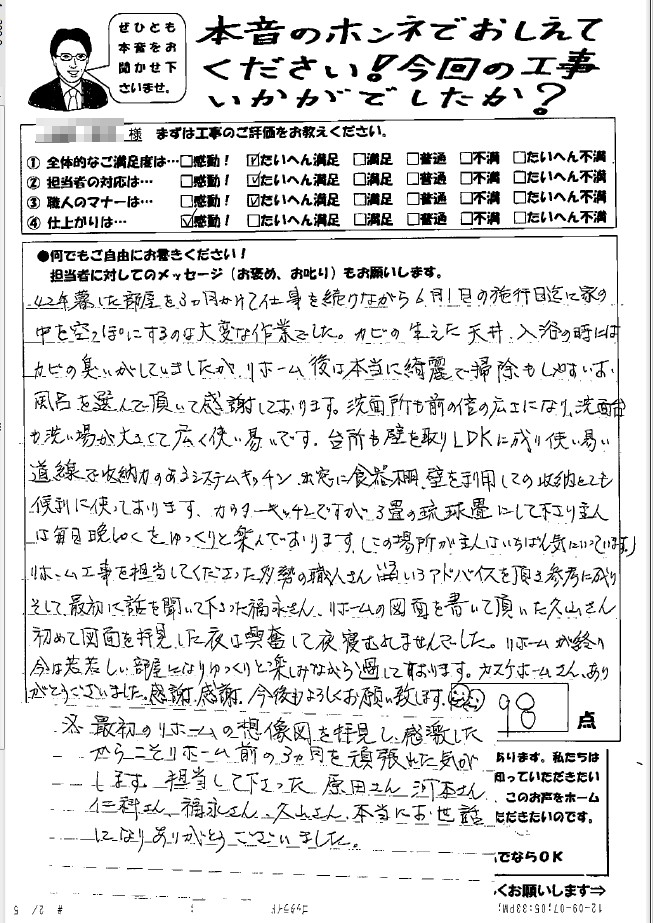 ぜひとも
本音をお
聞かせ下
さいませ。
本音のホンネでおしえて
ください!今回の工事
いかがでしたか?
様 まずは工事のご評価をお教えください。
① 全体的なご満足度は…□感動! ☑たいへん満足 □満足 □普通 □不満 □たいへん不満
② 担当者の対応は… □感動! ☑たいへん満足 □満足 □普通 □不満 □たいへん不満
③ 職人のマナーは… □感動! ☑たいへん満足 □満足 □普通 □不満 □たいへん不満
④ 仕上がりは… ☑感動! □たいへん満足 □満足 □普通 □不満 □たいへん不満
●何でもご自由にお書きください!
担当者に対してのメッセージ(お褒め、お叱り)もお願いします。
42年暮した部屋を3ヵ月かけて仕事を続けながら6月1日の施行日迄に家の
中を空っぽにするのは大変な作業でした。カビの生えた天井、入浴の時には
カビの臭いがしていましたが、リホーム後は本当に綺麗で掃除もしやすいお
風呂を選んで頂いて感謝しております。洗面所も前の倍の広さになり、洗面台
も洗い場が大きくて広く使い易いです。台所も壁を取りLDKに成り使い易い
導線で収納力のあるシステムキッチン、出窓に食器棚、壁を利用しての収納とても
便利に使っております。カウンターキッチンですが3畳の琉球畳にして下さり主人
は毎日晩しゃくをゆっくりと楽んでおります。(この場所が主人はいちばん気にいっています。)
リホーム工事を担当してくださった多勢の職人さん、色いろアドバイスを頂き参考に成り
そして最初に話を聞いて下さった福永さん、リホームの図面を書いて頂いた久山さん
初めて図面を拝見した夜は興奮して夜寝むれませんでした。リホームが終り
今は若若しい部屋になりゆっくりと楽しみながら過しております。カスケホームさん、あり
がとうございました。感謝、感謝。今後もよろしくお願い致します。
98 点
※ 最初のリホームの想像図を拝見し、感激した
からこそリホーム前の3ヵ月を頑張れた気が
します。担当して下さった 原田さん 河本さん
仁科さん、福永さん、久山さん、本当にお世話
になりありがとうございました。
あります。私たちは
知っていただきたい
、このお声をホーム
ただきたいのです。
でならOK
くお願いします⇒
12-09-07;05:33PM;
# 2/ 5